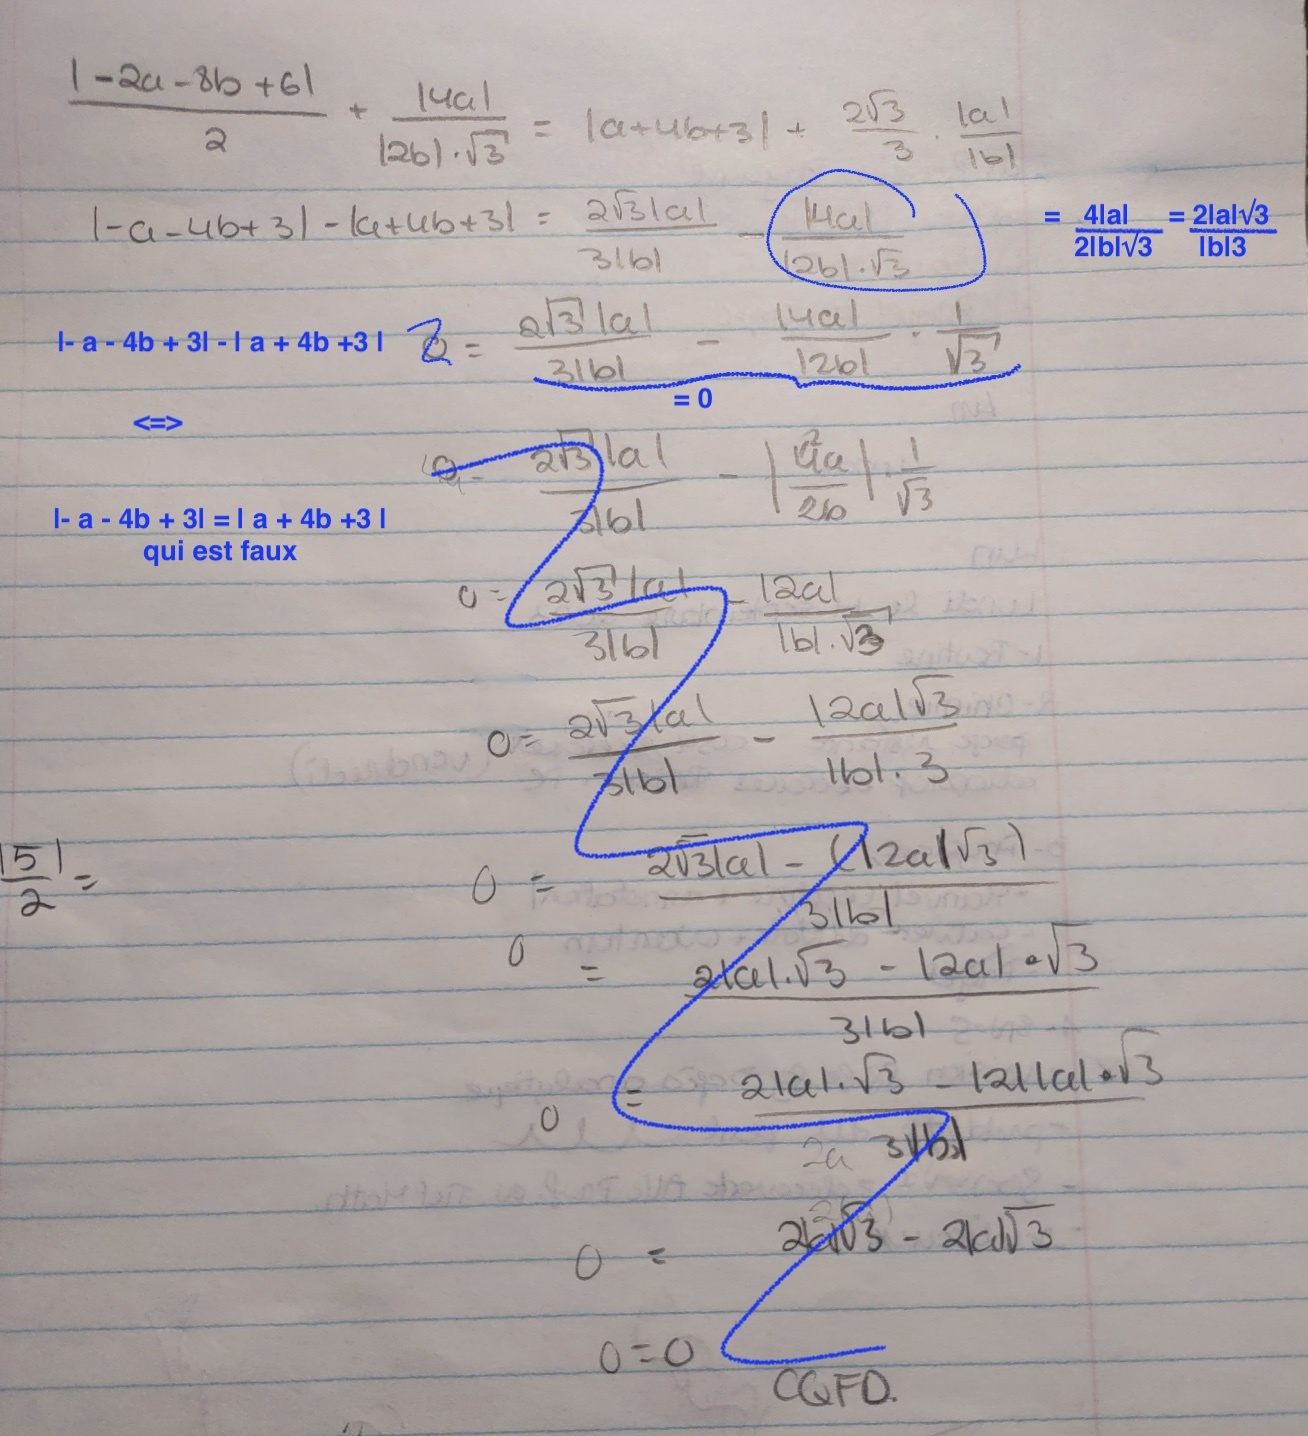 |-2a-8b+6|/2 + |4a|/|2b|·√3 = |a+4b+3| + 2√3/3 · |a|/|b|
|-a-4b+3| - |a+4b+3| = 2√3|a|/3|b| - |4a|/|2b|·√3 = 4|a|/2|b|√3 = 2|a|√3/|b|3
|- a - 4b + 3| - | a + 4b +3 | 0 = 2√3|a|/3|b| - |4a|/|2b| · 1/√3
= 0
<=>
0 = 2√3|a|/3|b| - |4a/2b| · 1/√3
|- a - 4b + 3| = | a + 4b +3 |
qui est faux
0 = 2√3|a|/3|b| - |2a|/|b|·√3
0 = 2√3|a|/3|b| - |2a|√3/|b|·3
|5|/2 =
0 = 2√3|a| - (|2a|√3)/3|b|
0 = 2|a|·√3 - |2a|•√3/3|b|
0 = 2|a|·√3 - |2||a|•√3/3|b|
0 = 2|a|√3 - 2|a|√3
0=0
CQFD.